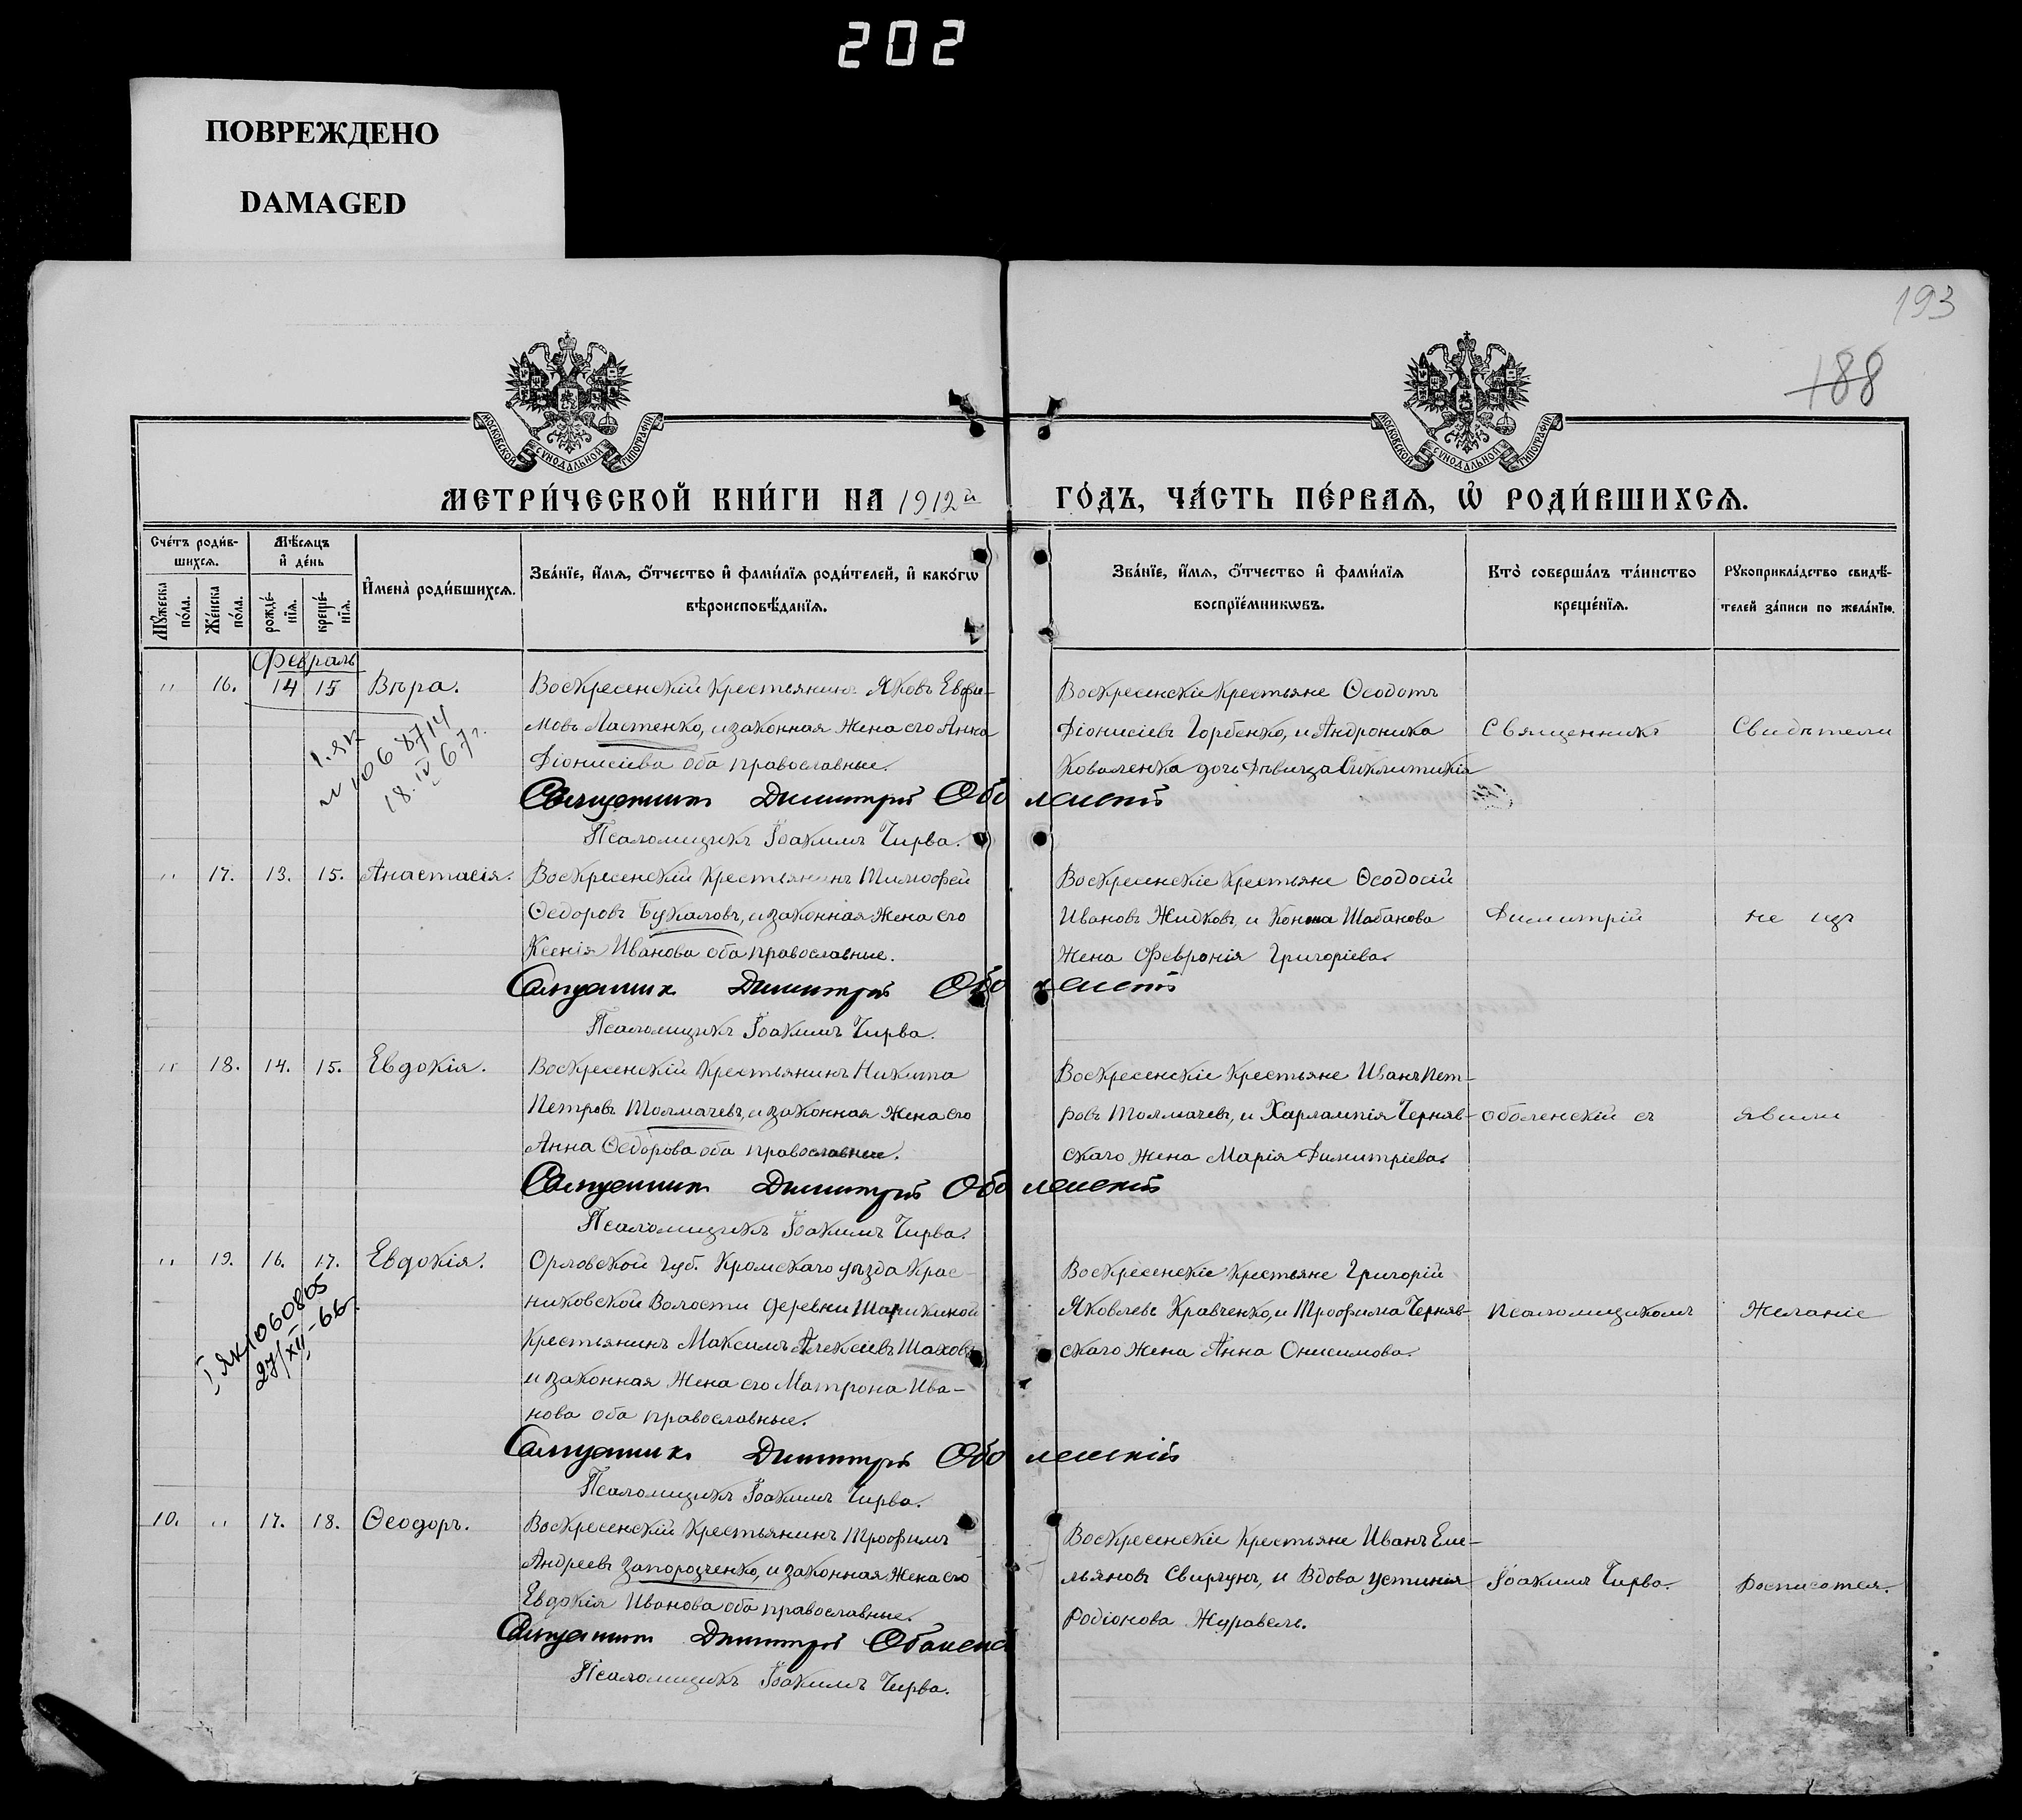 202
ПОВРЕЖДЕНО
DAMAGED
193
188
МОСКОВСКОЙ СѴНОДАЛЬНОЙ ТИПОГРАФІИ
МОСКОВСКОЙ СѴНОДАЛЬНОЙ ТИПОГРАФІИ
МЕТРИ́ЧЕСКОЙ КНИ́ГИ НА 1912й ГО́ДЪ, ЧА́СТЬ ПЕ́РВАЯ, Ѡ РОДИ́ВШИХСЯ.
Сче́тъ роди́в-
шихся.
Мѣ́сяцъ
и де́нь
Мꙋ́жеска по́ла.
Же́нска по́ла.
рожде́-
нїя.
креще́-
нїя.
И҆мена̀ роди́вшихся.
Зва́нїе, и҆́мя, ѻ҆́тчество и҆ фами́лїя роди́телей, и҆ како́гѡ
вѣроисповѣ́данїя.
Зва́нїе, и҆́мя, ѻ҆́тчество и҆ фами́лїя
воспрїе́мникѡвъ.
Кто̀ соверша́лъ та́инство
креще́нїя.
Рꙋкоприкла́дство свидѣ́-
телей за́писи по жела́нїю.
Февраль
" 16. 14 15 Вѣра.
Воскресенскій крестьянинъ Яковъ Евфи-
мовъ Ластенко, и законная жена его Анна
Діонисіева оба православные.
Священникъ Димитрій Оболенскій
Псаломщикъ Іоакимъ Чирва.
Воскресенскіе крестьяне Ѳеодотъ
Діонисіевъ Горбенко, и Андроника
Коваленка дочь дѣвица Сикклитикія
I. ЯК
№ 1068714
18.IV 67г.
" 17. 13. 15. Анастасія.
Воскресенскій крестьянинъ Тимоѳей
Ѳедоровъ Букаловъ, и законная жена его
Ксенія Иванова оба православные.
Священникъ Димитрій Оболенскій
Псаломщикъ Іоакимъ Чирва.
Воскресенскіе крестьяне Ѳеодосій
Ивановъ Жидковъ, и Шабанова
жена Февронія Григоріева.
" 18. 14. 15. Евдокія.
Воскресенскій крестьянинъ Никита
Петровъ Толмачевъ, и законная жена его
Анна Ѳедорова оба православные.
Священникъ Димитрій Оболенскій
Псаломщикъ Іоакимъ Чирва.
Воскресенскіе крестьяне Иванъ Пет-
ровъ Толмачевъ, и Харлампія Черняв-
скаго жена Марія Димитріева.
" 19. 16. 17. Евдокія.
Орловской губ. Кромскаго уѣзда Крас-
никовской Волости деревни Шарикиной
крестьянинъ Максимъ Алексіевъ Шаховъ
и законная жена его Матрона Ива-
нова оба православные.
Священникъ Димитрій Оболенскій
Псаломщикъ Іоакимъ Чирва.
Воскресенскіе крестьяне Григорій
Яковлевъ Кравченко, и Трофима Черняв-
скаго жена Анна Онисимова.
I, ЯК 1060805
27/XII-66г.
10. " 17. 18. Ѳеодоръ.
Воскресенскій крестьянинъ Трофимъ
Андреевъ Запорозченко, и законная жена его
Евдокія Иванова оба православные.
Священникъ Димитрій Оболенс
Псаломщикъ Іоакимъ Чирва.
Воскресенскіе крестьяне Иванъ Еме-
льяновъ Свиргунъ, и вдова Устинія
Родіонова Журавель.
Священникъ
Димитрій
Оболенскій съ
псаломщикомъ
Іоакимъ Чирва.
Свидѣтели
не изъ
явили
желаніе
росписатся.